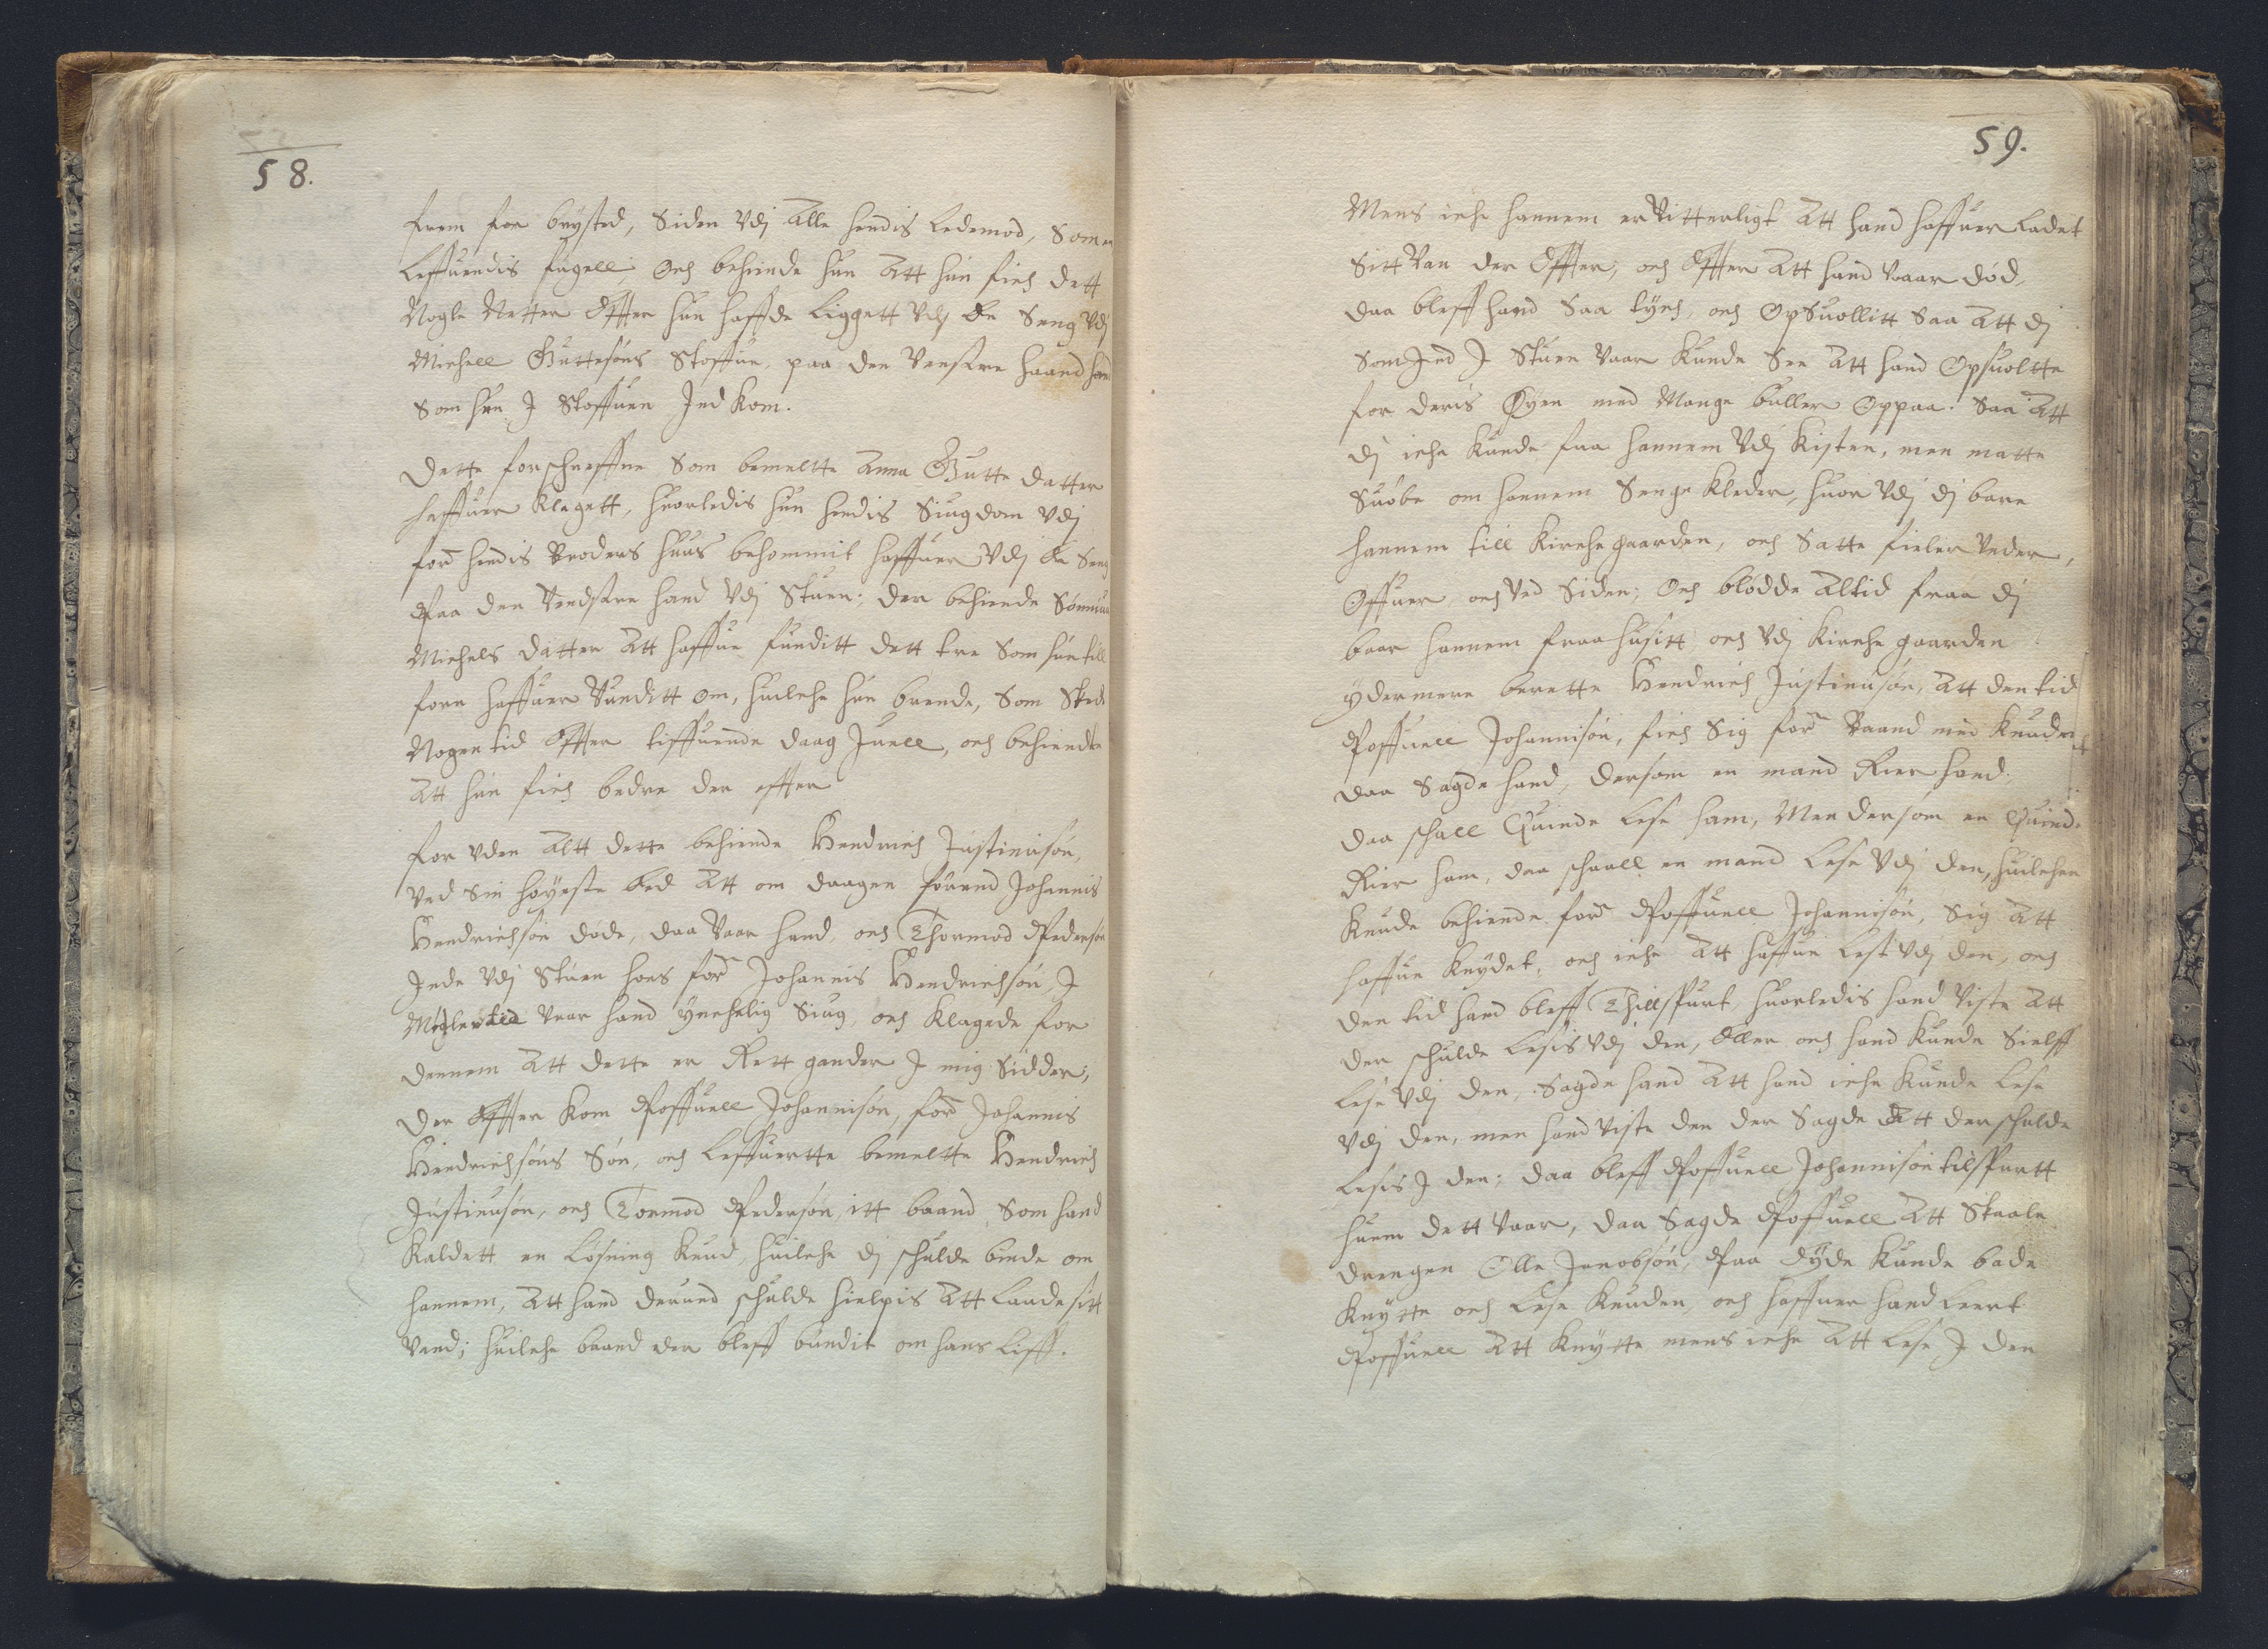 58.
frem for brysted, Siden Vdj Alle hendis Ledemod, Som en
Leffuendis fugell; Och bekiende hun Att hun fich dett
Nogle Netter Effter hun haffde Liggett Vdj de Seng Vdj
Michell Guttesøns Stoffue, paa den Venstre haand
Som hun J Stoffuen Jnd kom.
Dette forschreffne Som bemeltte Anna Gutte datter
haffuer klagett, huorledis hun hendis Siugdom Vdj
for: hendis Broders huus bekommit haffuer Vdj de Seng
Paa den Vendstre hand Vdj Stuen; der bekiende
Michels datter Att haffue funditt dett tre Som hun till
forn haffuer Bunditt om, huilche hun brende, Som Skede
Nogen tid Effter tiffuende daag Juell, och bekiendte
Att hun fich bedre der effter
for vden Altt dette bekiende Hendrich Justinusøn,
Ved Sin høyeste Eed Att om daagen førend Johannis
Hendrichsøn døde, daa Vaar hand, och Thormod Pedersøn
Jnde Vdj Stuen hoes for: Johannis Hendrichsøn, J
Midlertid Vaar hand ynchelig Siug, och klagede for
dennem Att dette er Rett gander J mig Sidder;
der Effter kom Poffuell Johannisøn, for: Johannis
Hendrichsøns Søn, och Leffuertte bemeltte Hendrich
Justinusøn, och Tormod Pedersøn, itt baand, Som hand
kaldett en Løsning knud, huilche dj schulde binde om
hannem, Att hand derued schulde hielpis Att Lande sitt
Vand; huilche baand der bleff bundit om hans Liff.
59.
Mens iche hannem er Vitterligt Att hand haffuer Ladet
Sitt Van der Effter; och Effter Att hand Vaar død,
daa bleff hand Saa tych, och OpSuollitt Saa Att dj
Som Jnd J Stuen Vaar kunde See Att hand Opsuoltte
for deris Øyen med Mange buller Oppaa. Saa Att
dj iche kunde faa hannem Vdj kisten, men matte
Suøbe om hannem Senge kleder, huor Vdj dj bare
hannem till kirche gaarden, och Satte fieler Veder,
Offuer och Ved Siden; Och blødde Altid fraa dj
baar hannem fraa husitt och Vdj kirche gaarden
ydermere berette Hendrich Justinusøn, Att den tid
Poffuell Johannisøn, fich Sig for: Baand med knuder
daa Sagde hand, dersom en mand Rier hand,
daa schall Quinde Lese ham, Men dersom en Quinde
Rier ham, daa schaall en mand Lese Vdj den, huilchen
knude bekiende for: Poffuell Johannisøn, Sig Att
haffue knydet, och iche Att haffue Lest Vdj den, och
den tid hand bleff Thillspurt, huorledis hand Viste Att
der schulde Lesis Vdj den, Eller och hand kunde Sielff
Lese Vdj den, Sagde hand Att hand iche kunde Lese
Vdj den, men hand Viste den der Sagde Att der schulde
Lesis J den; daa bleff Poffuell Johannisøn tilspurtt
huem dett Vaar, daa Sagde Poffuell Att Skaale
drengen Olle Jacobsøn, Paa Eyde kunde bade
knytte och Lese knuden, och haffuer hand Leert
Poffuell Att knytte mens iche Att Lese J den